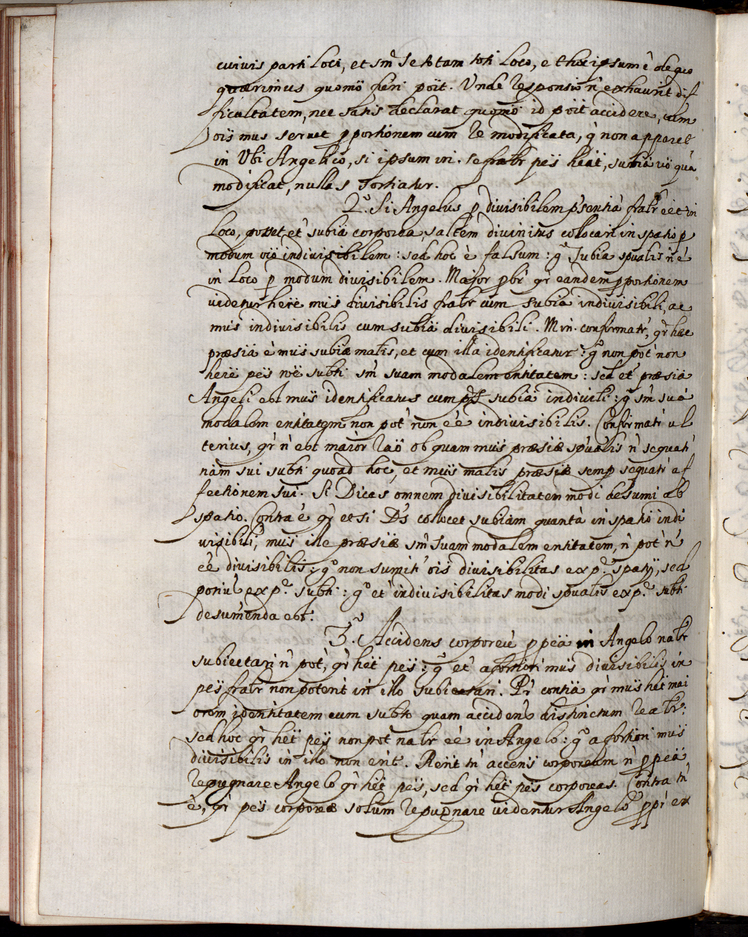 cuivis parti Loci, et sm̃ se totam toti Loco, et hoc ipsum ẽ de quo
quærimus quomõ fieri põit. Unde responsio ñ exhaurit dif
ficultatem, nec satis declarat quomõ id põit accidere, cum
õis mus servet p̱portionem cum re modificata, q̃ non apparet
in Ubi Angelico, si ipsum in se frãtr pẽs hẽat, subĩa ṽo quã
modificat, nullas sortiatur.
2.º Si Angelus p̱ divisibilem p̃sentiã frãtr ẽet in
Loco, posset et subĩa corporea saltem divinitus collocari in spatio p̱
modum õio indivisibilem: sed hoc ẽ falsum: gº subĩa spũalis ñ ẽ
in Loco p̱ modum divisibilem. Major pbr̃ qr̃ eandem p̱portionem
videtur hẽre mus divisibilis frãtr cum subĩa indivisibili, ac
mus indivisibilis cum subĩa divisibili. Min. confirmatr̃, qr̃ hæc
præsĩa ẽ mus subĩæ mat̃lis, et cum illa identificatur: gº non pot̃ non
hẽre pẽs subti sm̃ suam modalem entitatem: sed et præsĩa
Angeli est mus identificatus cum subĩa : gº sm̃ suã
modalem entitatem non pot̃ non ẽẽ indivisibilis. Confirmatr̃ ul
terius, qr̃ ñ est maior rãõ ob quam mus præsĩæ spũalis ñ sequatr̃
nãm sui subti quoad hoc, et mus mat̃lis præsĩæ semp̱ sequatr̃ af
fectionem sui. Si Dicas omnem divisibilitatem modi desumi ab
spatio. Contra ẽ qr̃ etsi Ds̃ collocet subĩam quantã in spatio indi
visibili, mus ille præsĩæ sm̃ suam modalem entitatem, ñ pot̃ ñ
ẽẽ divisibilis: gº non sumitr̃ õis divisibilitas ex p̃ spatij, sed
ex p̃ subti: gº et indivisibilitas modi spũalis ex p̃ subti
desumenda est.
3.º Accidens corporeũ p̱ p̱eã in Angelo natr̃
subiectari ñ pot̃, qr̃ hẽt pẽs: gº et a fortiori mus divisibilis in
pẽs frãtr non poterit in illo subiectari. Pr̃ consã qr̃ mus hẽt mai
orem identitatem cum subto quam accidens distinctum reatr̃:
sed hoc qr̃ hẽt pẽs non pot̃ natr̃ ẽẽ in Angelo: gº a fortiori mus
divisibilis in illo non erit. accens corporeum ñ p̱ p̱eã
repugnare Angelo qr̃ hẽt pẽs, sed qr̃ hẽt pẽs corporeas. Contra tñ
ẽ, qr̃ pẽs corporeæ solum repugnare videntur Angelo p̱p̱r̃ ex